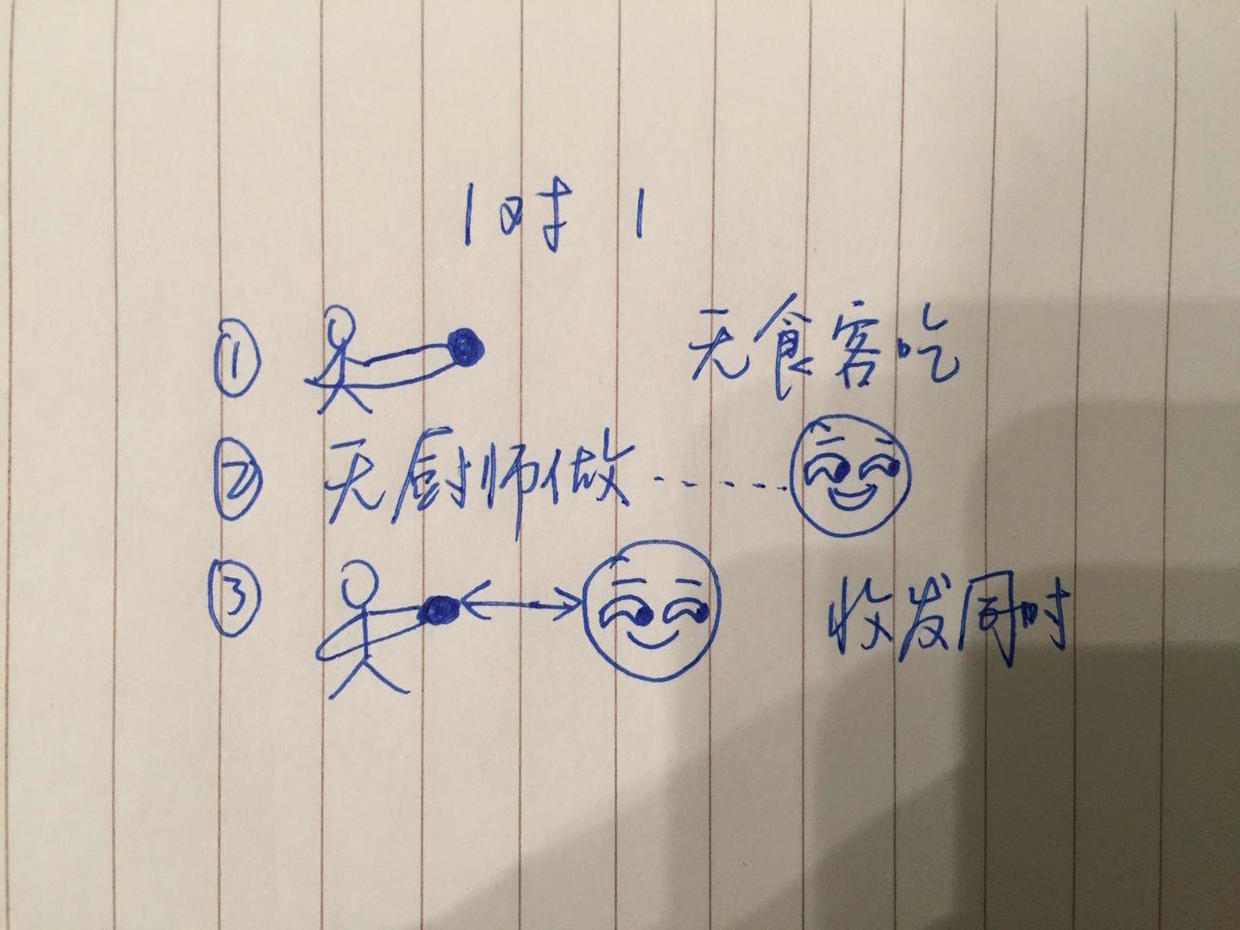 1对 1
① 无食客吃
② 无厨师做
③ 收发同时